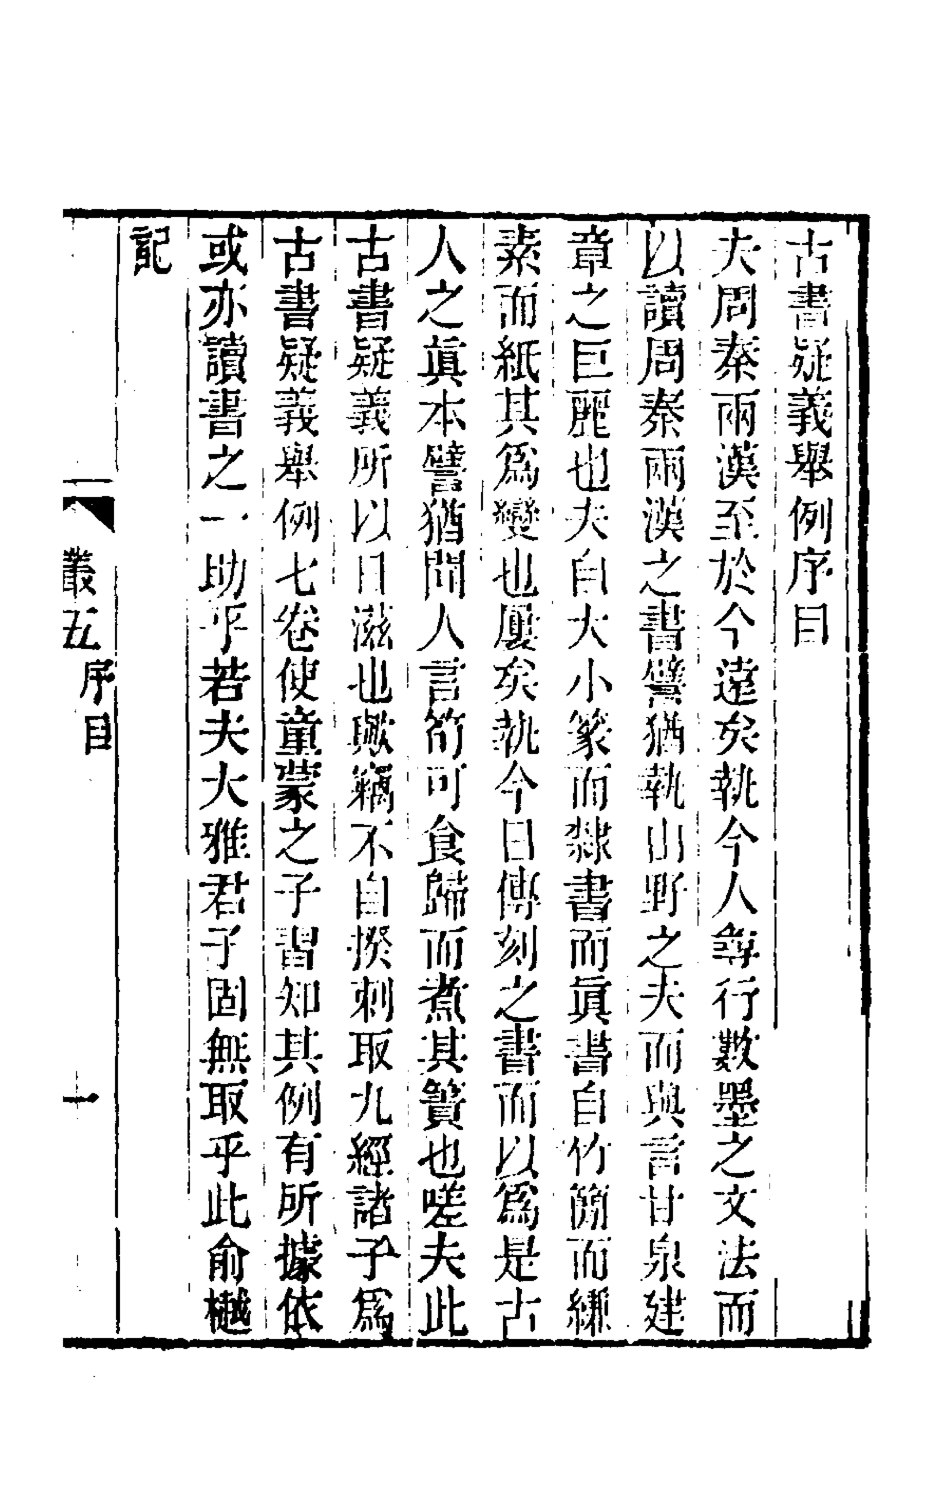 古書疑義舉例序目
夫周秦兩漢至於今遠矣執今人尋行數墨之文法而
以讀周秦兩漢之書譬猶執山野之夫而與言甘泉建
章之巨麗也夫自大小篆而隸書而眞書自竹簡而縑
素而紙其爲變也屢矣執今日傳刻之書而以爲是古
人之眞本譬猶聞人言筍可食歸而煮其簀也嗟夫此
古書疑義所以日滋也歟竊不自揆刺取九經諸子爲
古書疑義舉例七卷使童蒙之子習知其例有所據依
或亦讀書之一助乎若夫大雅君子固無取乎此俞樾
記
叢五
序目
一